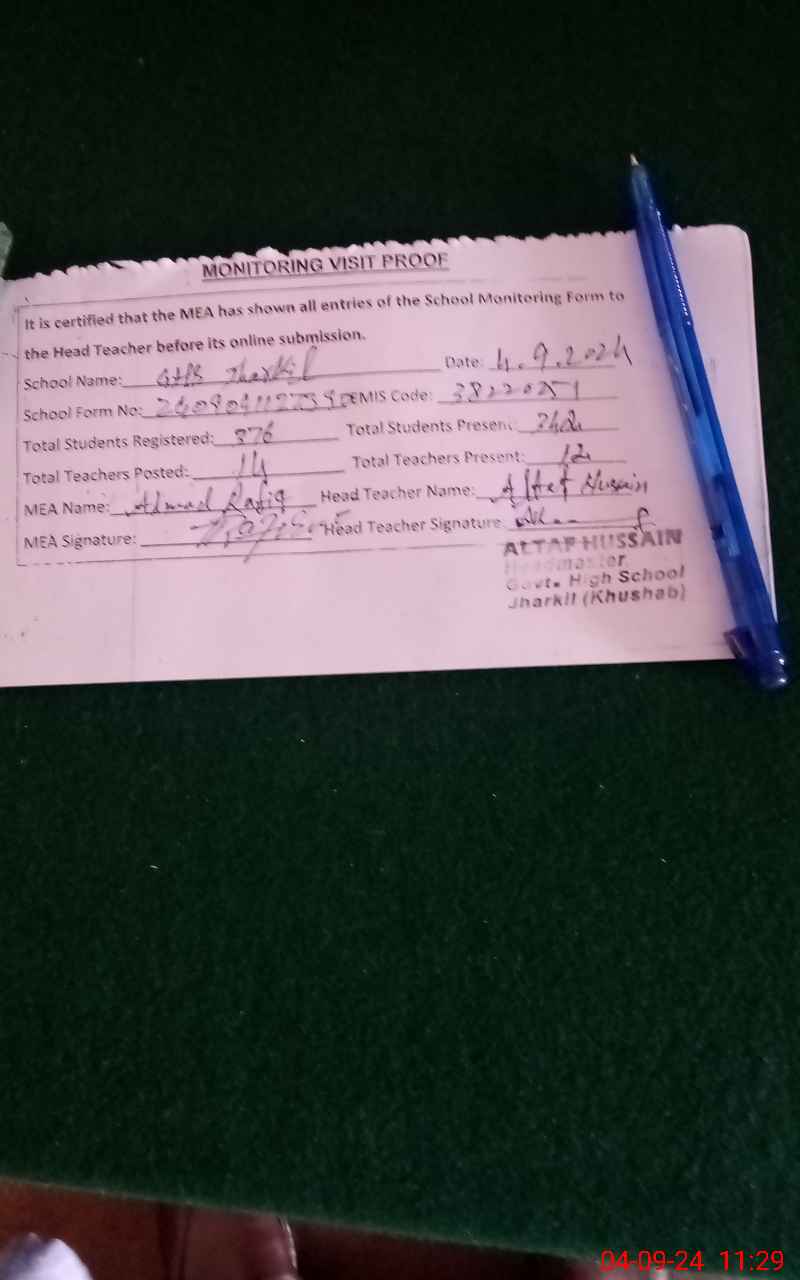 MONITORING VISIT PROOF
It is certified that the MEA has shown all entries of the School Monitoring Form to
the Head Teacher before its online submission.
School Name: GHS Jharkil Date: 4.9.2024
School Form No: EMIS Code: 38220251
Total Students Registered: 376 Total Students Present:
Total Teachers Posted: 14 Total Teachers Present: 12
MEA Name: Ahmad Rafiq Head Teacher Name: Altaf Hussain
MEA Signature: Head Teacher Signature
ALTAF HUSSAIN
Headmaster
Govt. High School
Jharkil (Khushab)
04-09-24 11:29